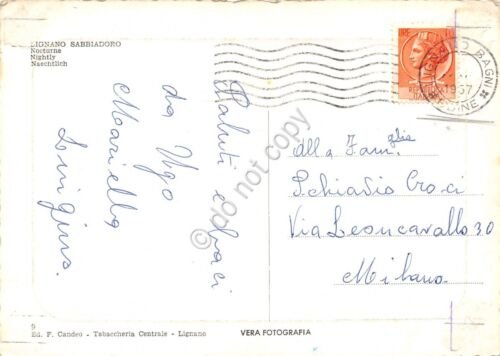 LIGNANO SABBIADORO
Nocturne
Nightly
Naechtlich
Saluti e baci
da Ugo
Mariella
Luigino.
LIRE 10
LIGNANO BAGNI
1957
* UDINE *
Alla Famiglia
Schiavio Croci
Via Leoncavallo 30
Milano
9
Ed. F. Candeo - Tabaccheria Centrale - Lignano
VERA FOTOGRAFIA
do not copy